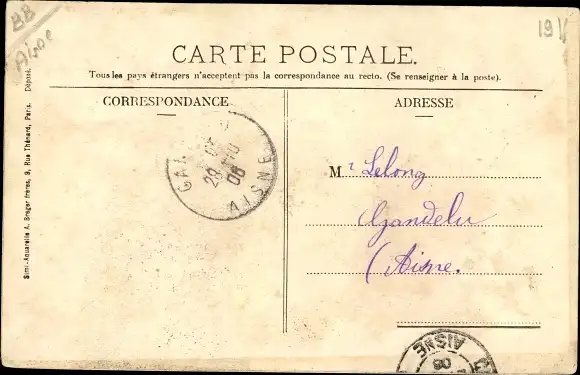 88
Aisne
19
CARTE POSTALE.
Tous les pays étrangers n'acceptent pas la correspondance au recto. (Se renseigner à la poste).
CORRESPONDANCE
ADRESSE
AISNE
08
Mr Lelong
Gandelu
(Aisne.
AISNE
08
Simi-Aquarelle A. Breger frères, 9, Rue Thénard, Paris. Déposé.